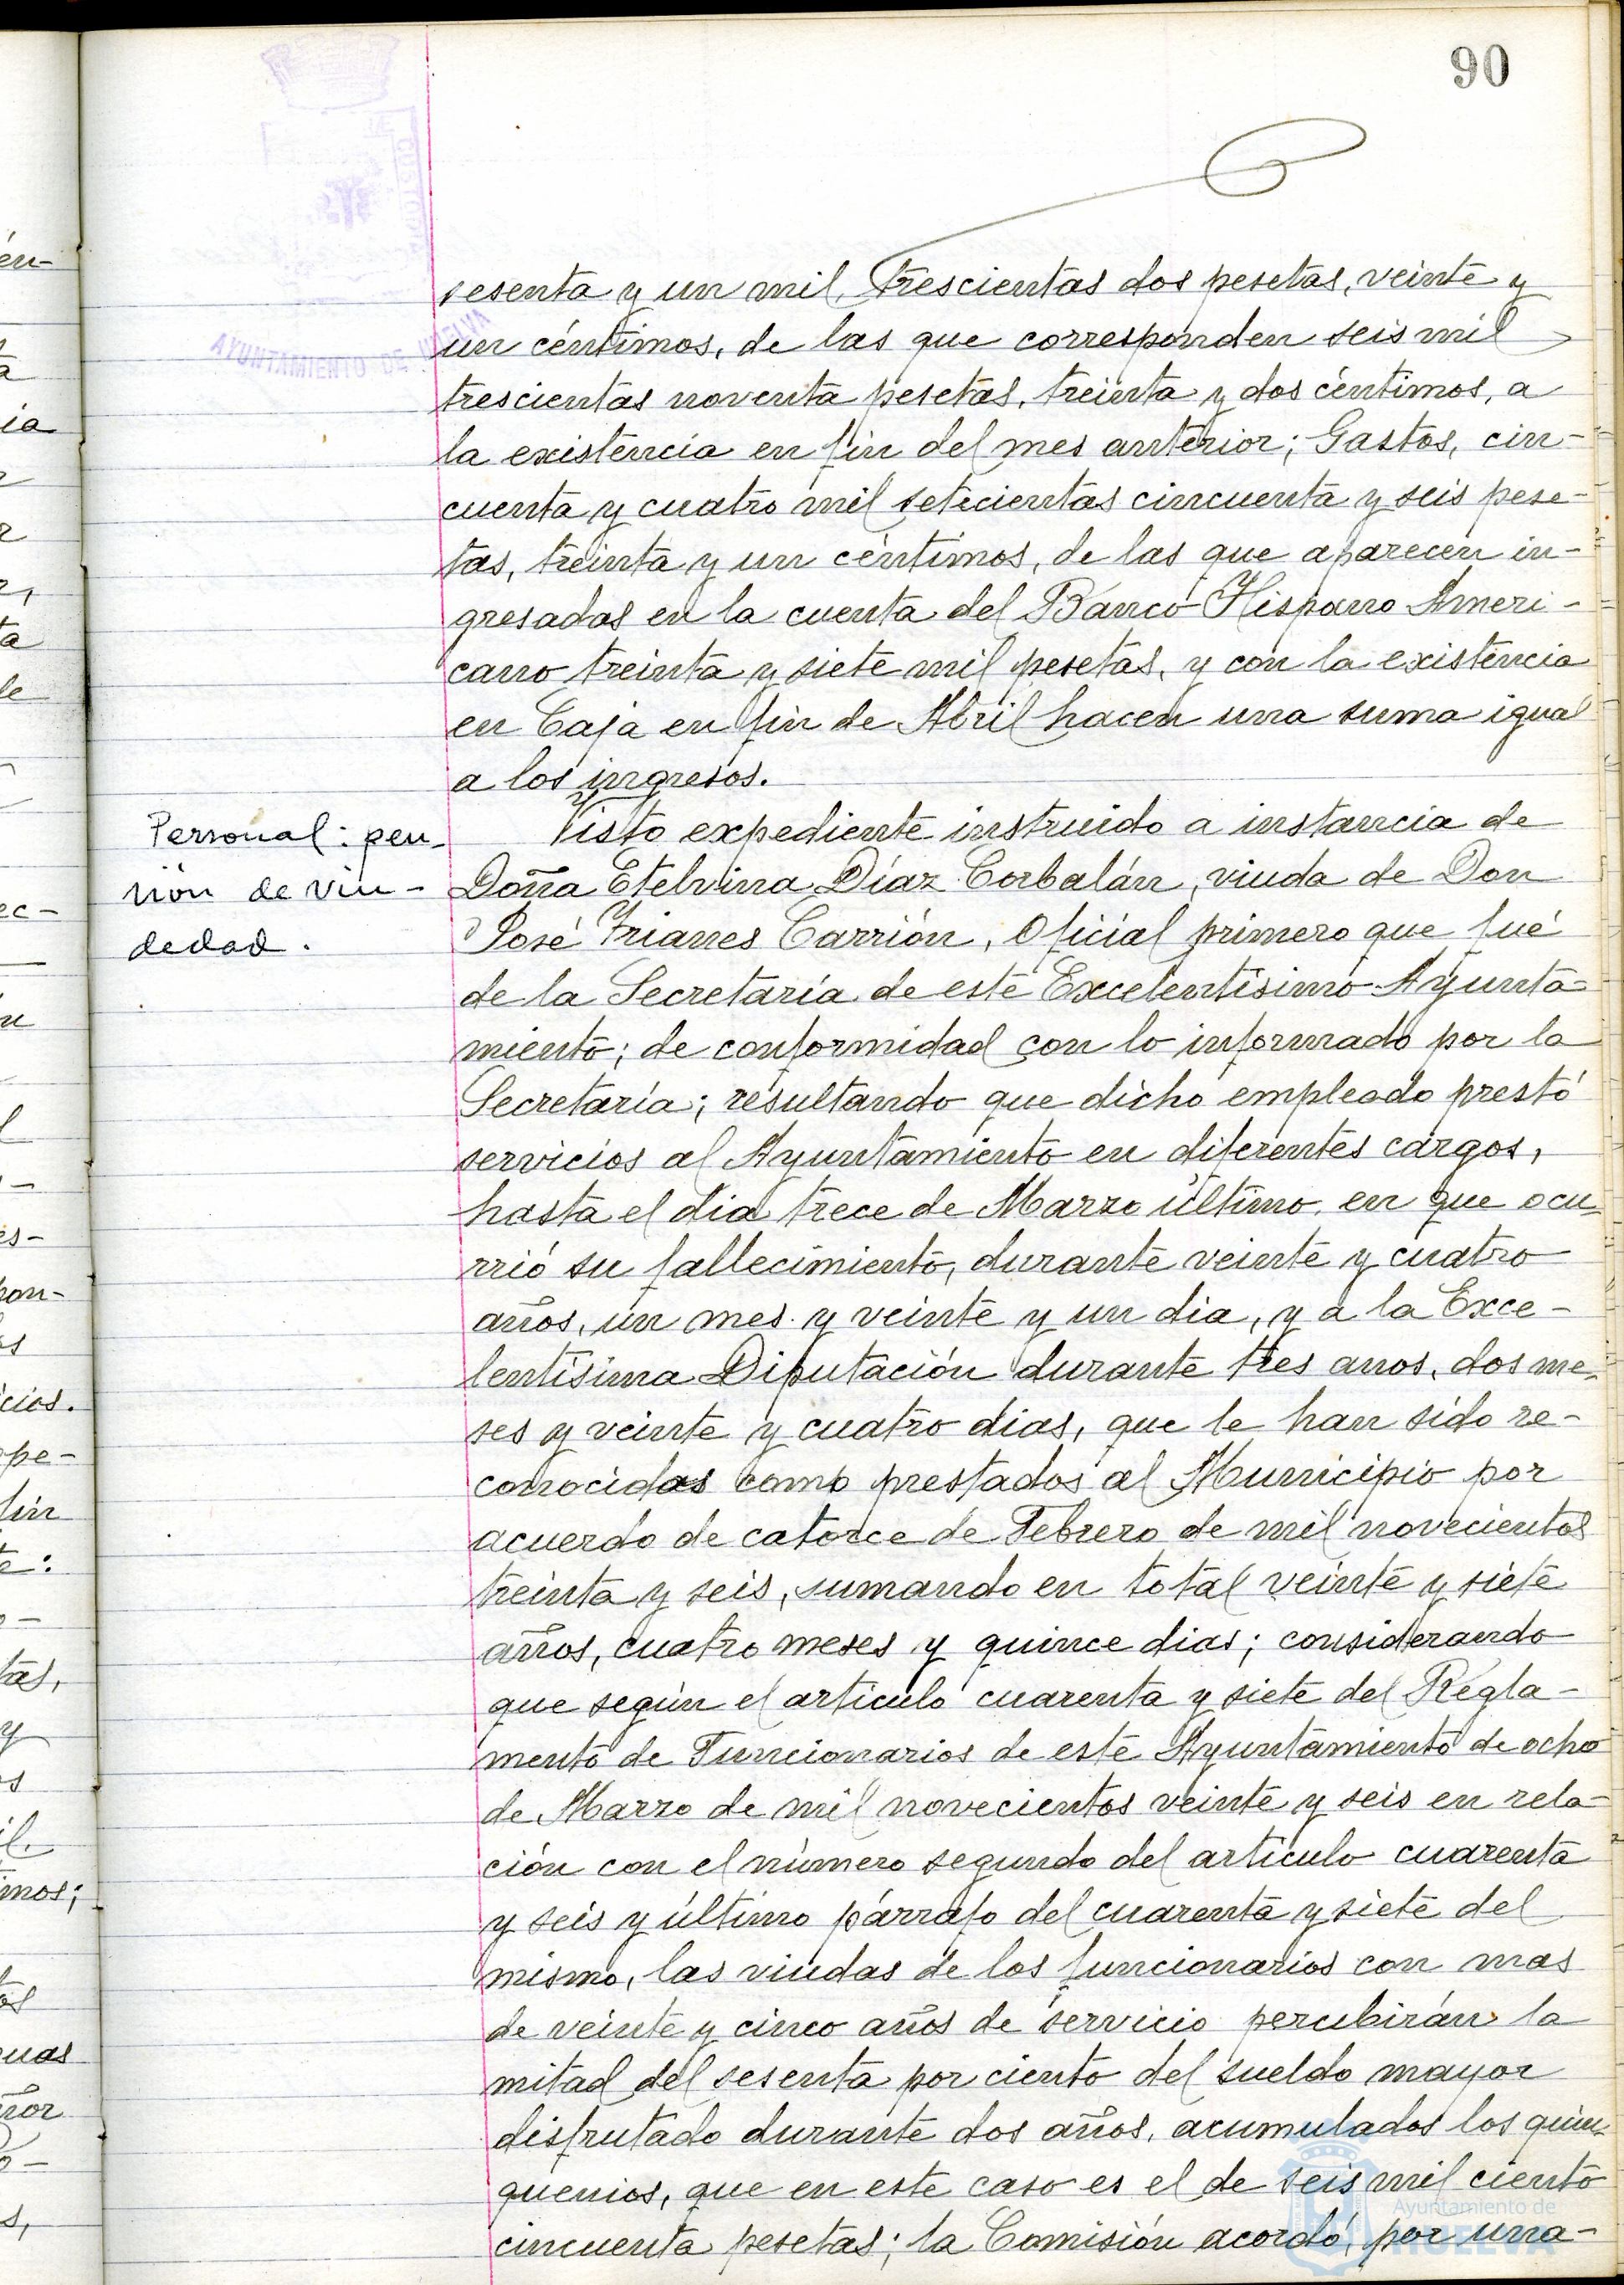 90
sesenta y un mil, trescientas dos pesetas, veinte y
un céntimos, de las que corresponden seis mil
AYUNTAMIENTO DE HUELVA
trescientas noventa pesetas, treinta y dos céntimos, a
la existencia en fin del mes anterior; Gastos, cin-
cuenta y cuatro mil setecientas cincuenta y seis pese-
tas, treinta y un céntimos, de las que aparecen in-
gresadas en la cuenta del Banco Hispano Ameri-
cano treinta y siete mil pesetas, y con la existencia
en Caja en fin de Abril hacen una suma igual
a los ingresos.
Personal: pen-
sión de viu-
dedad.
Visto expediente instruido a instancia de
Doña Etelvina Díaz Corbalán, viuda de Don
José Frianes Carrión, Oficial primero que fué
de la Secretaría de este Excelentísimo Ayunta-
miento; de conformidad con lo informado por la
Secretaría; resultando que dicho empleado prestó
servicios al Ayuntamiento en diferentes cargos,
hasta el dia trece de Marzo último, en que ocu-
rrió su fallecimiento, durante veinte y cuatro
años, un mes y veinte y un dia, y a la Exce-
lentísima Diputación durante tres anos, dos me-
ses y veinte y cuatro dias, que le han sido re-
conocidas como prestados al Municipio por
acuerdo de catorce de Febrero de mil novecientos
treinta y seis, sumando en total veinte y siete
años, cuatro meses y quince dias; considerando
que según el articulo cuarenta y siete del Regla-
mento de Funcionarios de este Ayuntamiento de ocho
de Marzo de mil novecientos veinte y seis en rela-
ción con el número segundo del articulo cuarenta
y seis y último párrafo del cuarenta y siete del
mismo, las viudas de los funcionarios con mas
de veinte y cinco años de servicio percibirán la
mitad del sesenta por ciento del sueldo mayor
disfrutado durante dos años, acumulados los quin-
quenios, que en este caso es el de seis mil ciento
cincuenta pesetas; la Comisión acordó, por una-
Ayuntamiento de
HUELVA